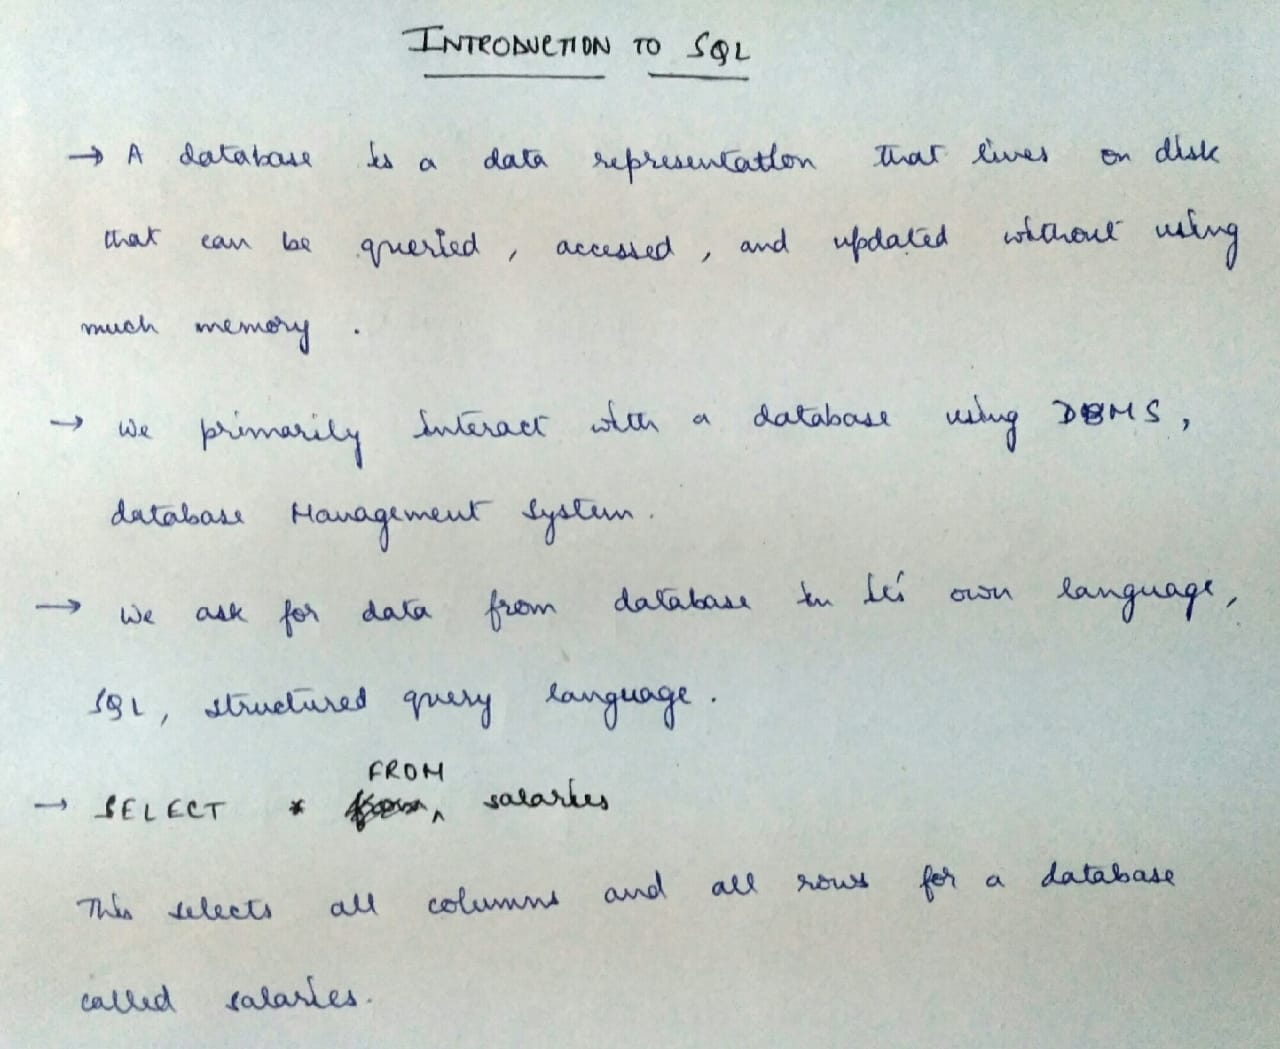 INTRODUCTION TO SQL
→ A database is a data representation that lives on disk
that can be queried, accessed, and updated without using
much memory.
→ we primarily interact with a database using DBMS,
database Management System.
→ we ask for data from database in it's own language,
SQL, structured query language.
FROM
→ SELECT * ^ salaries
This selects all columns and all rows for a database
called salaries.